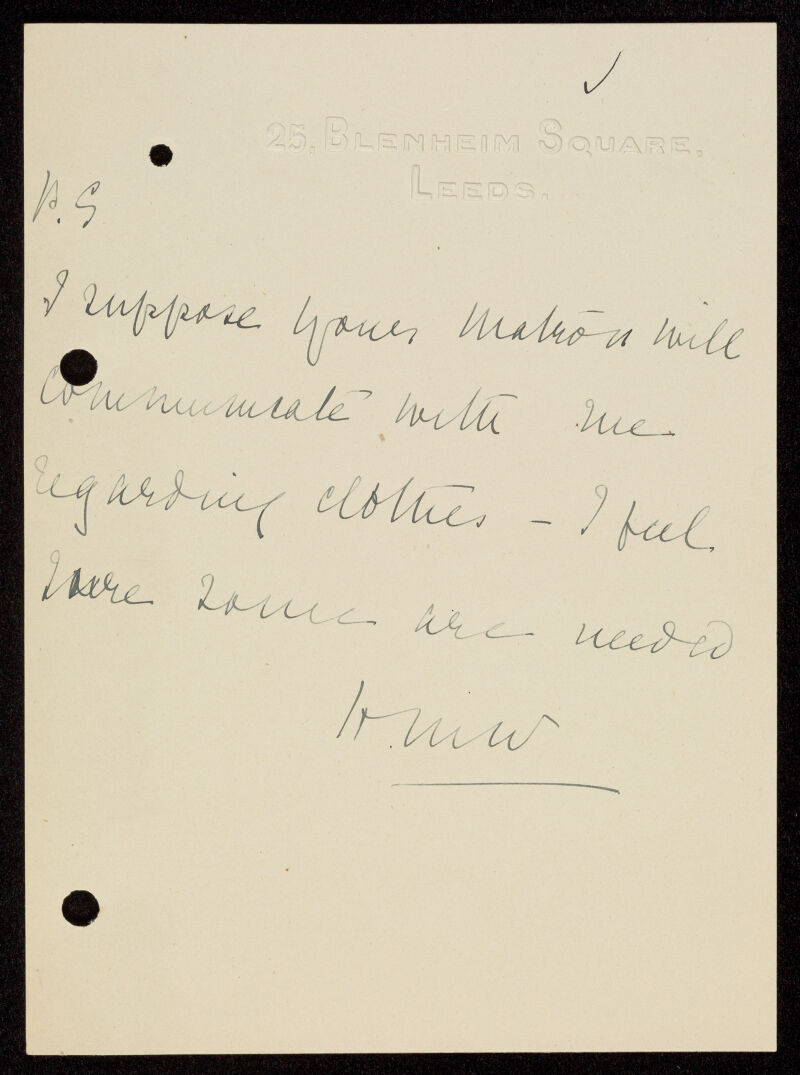 25, BLENHEIM SQUARE,
LEEDS.
P.S
I suppose your Matron will
communicate with me
regarding clothes – I feel
sure some are needed
H.M.W